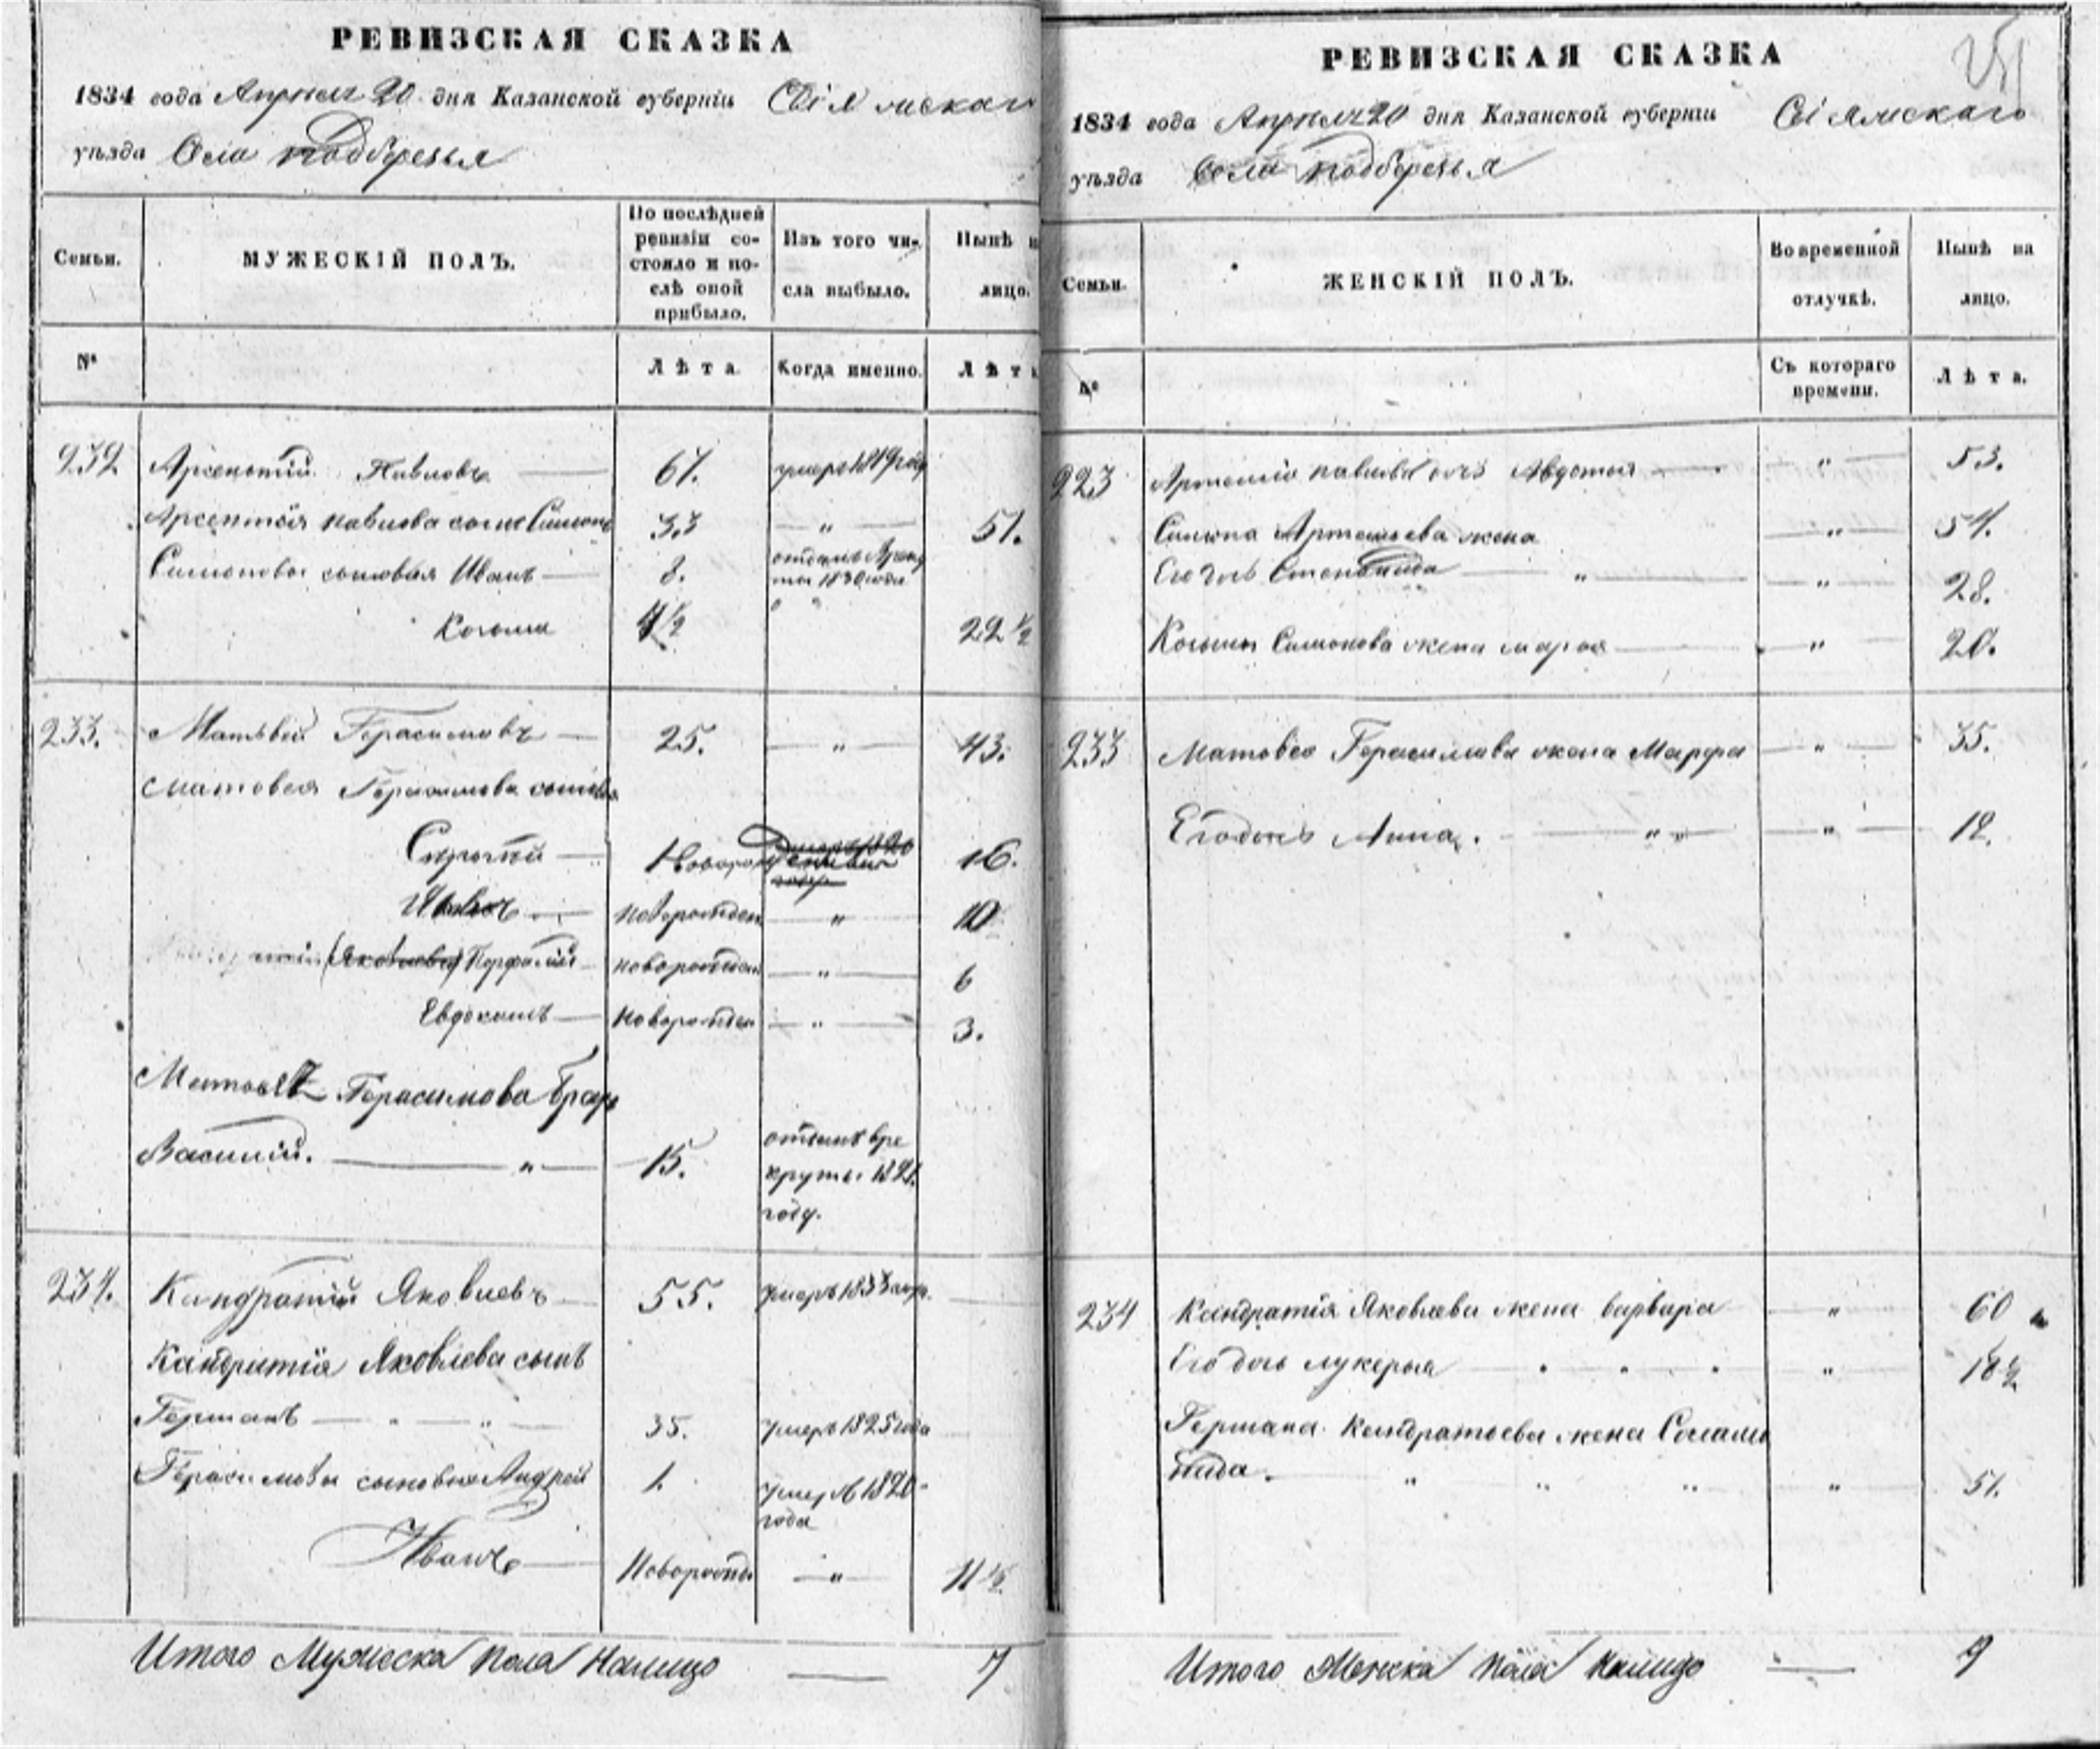 РЕВИЗСКАЯ СКАЗКА
1834 года Апреля 20 дня Казанской губерніи
уѣзда Села Подберезья
Семьи.
МУЖЕСКІЙ ПОЛЪ.
По послѣдней ревизіи состояло и послѣ оной прибыло.
Изъ того числа выбыло.
Нынѣ на лицо.
№
Лѣта
Когда именно.
Лѣта
232 Павловъ 67. умеръ 1819 году
Павлова сынъ Симонъ 33 — " — 51.
Симоновы сыновья Иванъ 8. отданъ 1830 года
Козьма 4½ " 22½
233. Матвей Герасимовъ — 25. — " — 43.
Матовея Герасимова сыновья
Сергей — 16.
Иванъ — новорожден — " — 10
(Яковлева) новорожден — " — 6
Евдокимъ — новорожден — " — 3.
Герасимова братъ
Василий. — " — 15. отданъ в рекруты 1821. году.
234. Кандратий Яковлевъ 55. умеръ 1833 году.
Кандратия Яковлева сынъ
Германъ — " — " — 35. умеръ 1825 года
Герасимовы сыновья Андрей 1. умеръ 1820 года
Иванъ — Новорожде — " — 11½
Итого Мужеска пола Налицо — 7
РЕВИЗСКАЯ СКАЗКА
1834 года Апреля 20 дня Казанской губерніи
уѣзда Села Подберезья
Семьи.
ЖЕНСКІЙ ПОЛЪ.
Во временной отлучкѣ.
Нынѣ на лицо.
№
Съ котораго времени.
Лѣта.
223 Авдотья — " — 53.
Симона Артемьева жена — " — 54.
Его дочь Степанида — " — " — 28.
Козьмы Симонова жена марья — " — 20.
233 Матовея Герасимова жена Марфа — " — 35.
Его дочь Анна. — " — " — 12.
234 Кандратия Яковлева жена варвара — " — 60
Его дочь лукерья " 18½
Германа Кандратьева жена Соломо
нида. " " " " 51.
Итого Женска пола налицо — 9